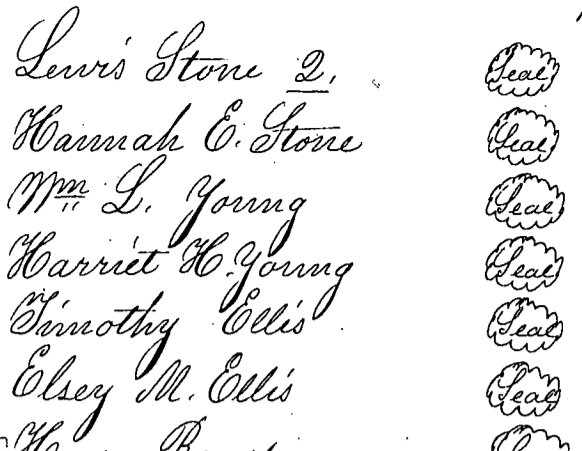 Lewis Stone 2. Seal
Hannah E. Stone Seal
Wm L. Young Seal
Harriet H. Young Seal
Timothy Ellis Seal
Elsey M. Ellis Seal